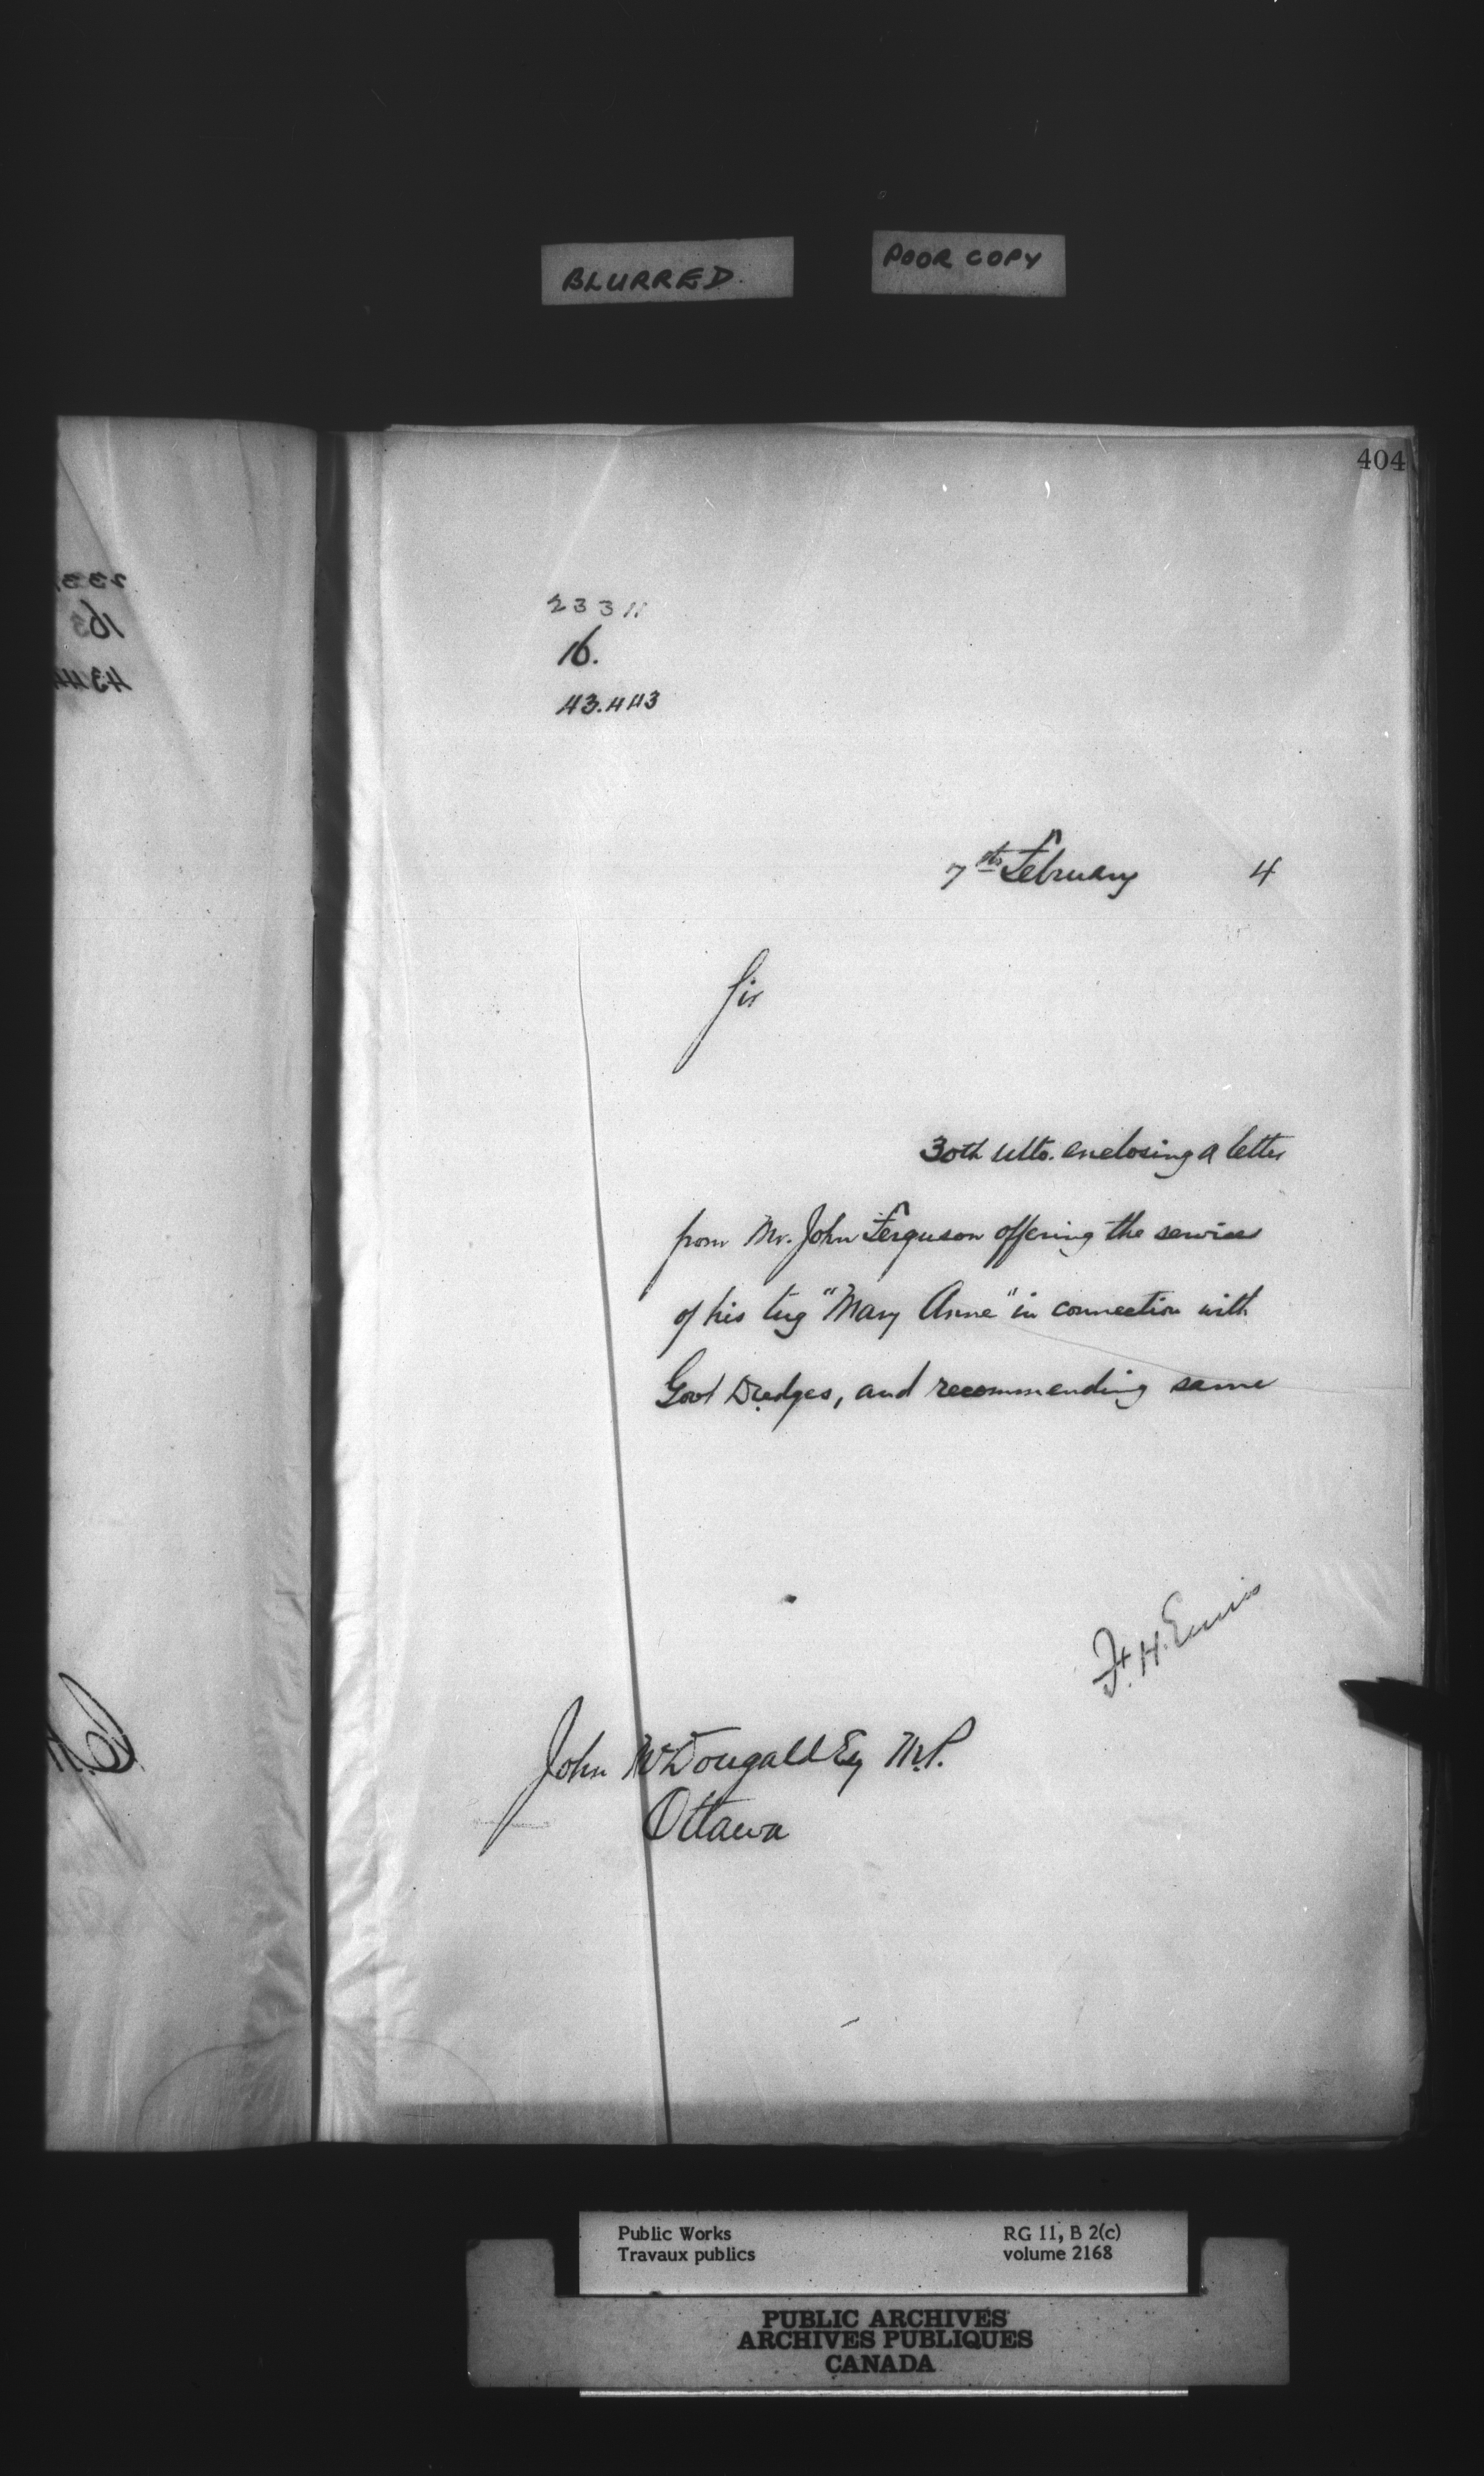 BLURRED.
POOR COPY
404
16.
43.443
7th February 4
Sir
30th ulto. enclosing a letter
from Mr. John Ferguson offering the services
of his tug "Mary Anne" in connection with
Govt Dredges, and recommending same
F. H. Ennis
John McDougall Esq M.P.
Ottawa
Public Works
Travaux publics
RG 11, B 2(c)
volume 2168
PUBLIC ARCHIVES
ARCHIVES PUBLIQUES
CANADA